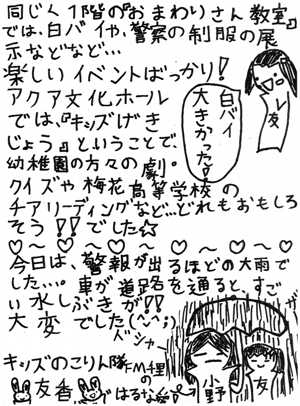 同じく1階の『おまわりさん教室』
では、白バイや、警察の制服の展
示などなど…
楽しいイベントばっかり!
アクア文化ホール
では、『キッズげき
じょう』ということで、
幼稚園の方々の劇。
クイズや梅花高等学校の
チアリーディングなど…どれもおもしろ
そう!!でした☆
白バイ
大きかった♡
友
♡~♡~♡~♡~♡~♡~♡
今日は、警報が出るほどの大雨で
した…。車が道路を通ると、すご
い水しぶきが!!
大変でした(^^;)
バシャ
キッズのこりん隊FM千里
の
友香
ではるな
小野
友